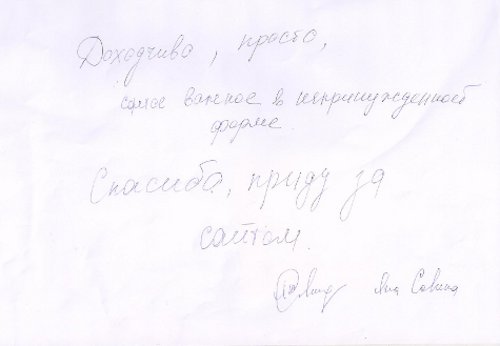 Доходчиво, просто,
самое важное в непринужденной
форме.
Спасиба, приду за
сайтом.
Яна Савина